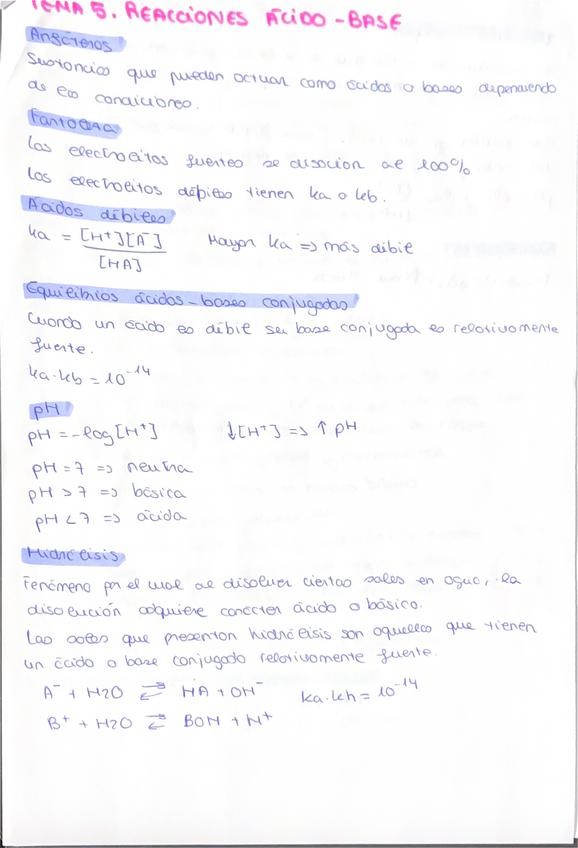 TEMA 5. REACCIONES ÁCIDO-BASE
Anfóteros
Sustancias que pueden actuar como ácidos o bases dependiendo
de las condiciones.
Fortaleza
Los electrolitos fuertes se disocian al 100%
Los electrolitos débiles tienen ka o kb.
Ácidos débiles
ka = [H⁺][A⁻] / [HA] Mayor ka => más débil
Equilibrios ácidos-bases conjugadas
Cuando un ácido es débil su base conjugada es relativamente
fuerte.
ka·kb = 10⁻¹⁴
pH
pH = -log[H⁺] ↓[H⁺] => ↑ pH
pH = 7 => neutra
pH > 7 => básica
pH < 7 => ácida
Hidrólisis
Fenómeno por el cual al disolver ciertas sales en agua, la
disolución adquiere carácter ácido o básico.
Las sales que presentan hidrólisis son aquellas que tienen
un ácido o base conjugado relativamente fuerte.
A⁻ + H2O ⇌ HA + OH⁻ ka·kh = 10⁻¹⁴
B⁺ + H2O ⇌ BOH + H⁺